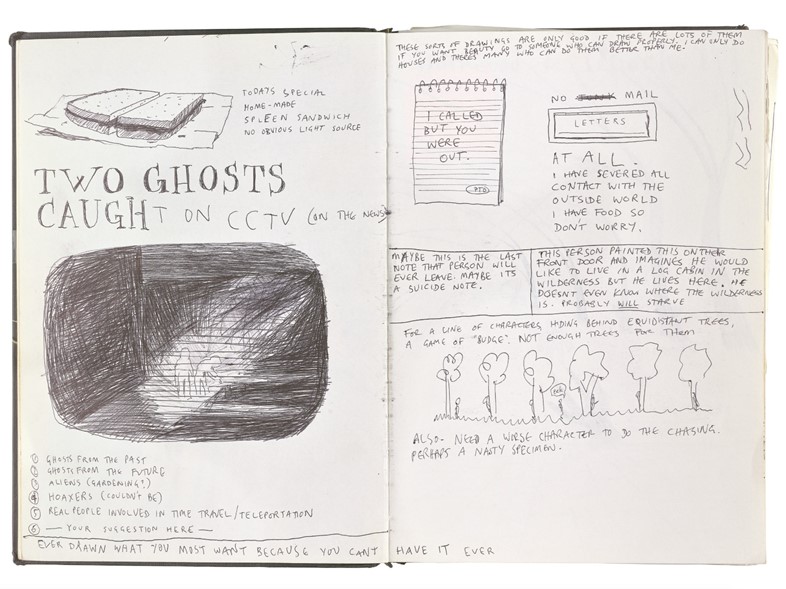 TODAYS SPECIAL
HOME-MADE
SPLEEN SANDWICH
NO OBVIOUS LIGHT SOURCE
TWO GHOSTS
CAUGHT ON CCTV (ON THE NEWS)
① GHOSTS FROM THE PAST
② GHOSTS FROM THE FUTURE
③ ALIENS (GARDENING?)
④ HOAXERS (COULDN'T BE)
⑤ REAL PEOPLE INVOLVED IN TIME TRAVEL/TELEPORTATION
⑥ — YOUR SUGGESTION HERE —
EVER DRAWN WHAT YOU MOST WANT BECAUSE YOU CANT HAVE IT EVER
THESE SORTS OF DRAWINGS ARE ONLY GOOD IF THERE ARE LOTS OF THEM
IF YOU WANT BEAUTY GO TO SOMEONE WHO CAN DRAW PROPERLY. I CAN ONLY DO
HOUSES AND THERES MANY WHO CAN DO THEM BETTER THAN ME.
I CALLED
BUT YOU
WERE
OUT.
PTO
NO MAIL
LETTERS
AT ALL.
I HAVE SEVERED ALL
CONTACT WITH THE
OUTSIDE WORLD
I HAVE FOOD SO
DONT WORRY.
MAYBE THIS IS THE LAST
NOTE THAT PERSON WILL
EVER LEAVE. MAYBE ITS
A SUICIDE NOTE.
THIS PERSON PAINTED THIS ON THEIR
FRONT DOOR AND IMAGINES HE WOULD
LIKE TO LIVE IN A LOG CABIN IN THE
WILDERNESS BUT HE LIVES HERE. HE
DOESNT EVEN KNOW WHERE THE WILDERNESS
IS. PROBABLY WILL STARVE
FOR A LINE OF CHARACTERS HIDING BEHIND EQUIDISTANT TREES,
A GAME OF "BUDGE". NOT ENOUGH TREES FOR THEM
ALSO- NEED A WORSE CHARACTER TO DO THE CHASING.
PERHAPS A NASTY SPECIMEN.